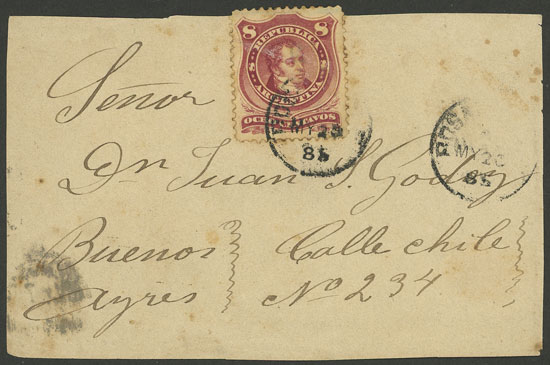 8 8
REPUBLICA
8 8
ARGENTINA
OCHO CENTAVOS
MY 26
85
MY 26
85
Señor
Dn Juan S. Godoy
Buenos Calle Chile
Ayres No 234